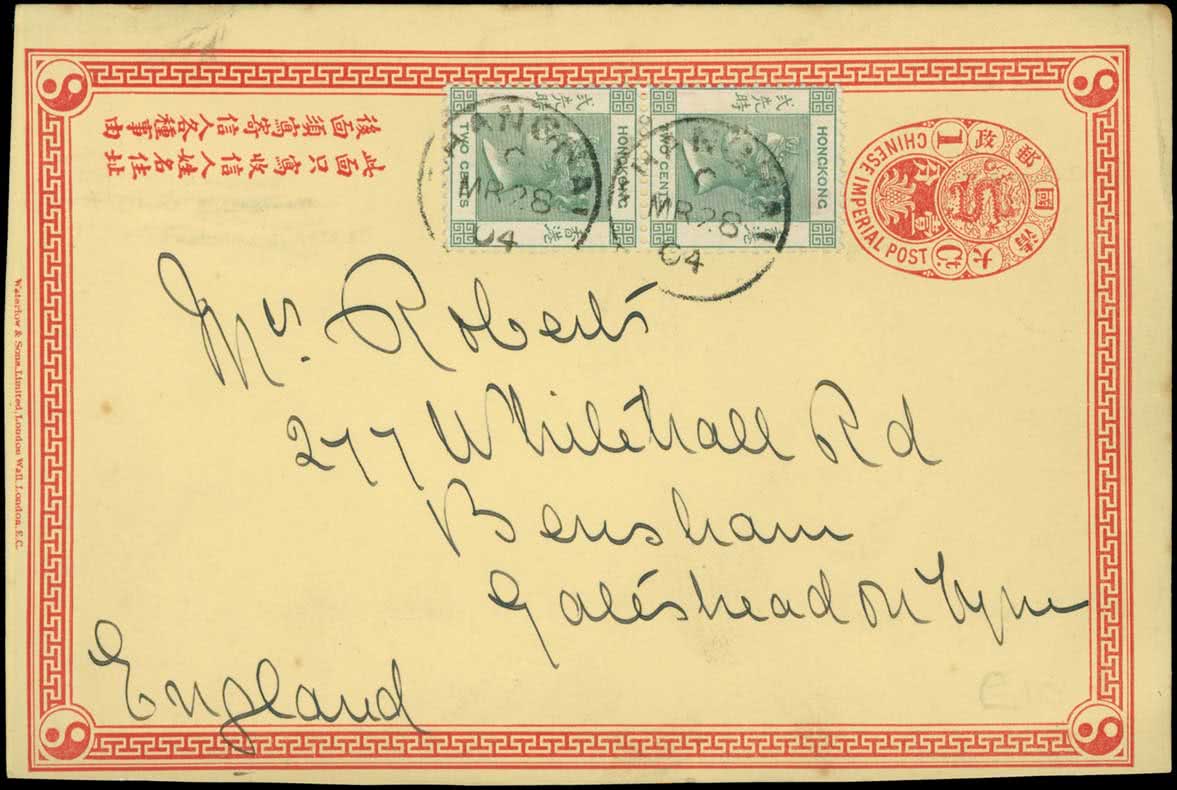 後面須寫寄信人各種事由
此面只寫收信人姓名住址
弍先時
HONGKONG
TWO CENTS
香港
弍先時
HONGKONG
TWO CENTS
香港
SHANGHAI
C
MR 28
04
SHANGHAI
C
MR 28
04
大清國郵政
CHINESE IMPERIAL POST
1 Ct.
Mrs. Roberts
277 Whitehall Rd
Bensham
Gateshead on Tyne
England
Waterlow & Sons Limited, London Wall, London, E.C.